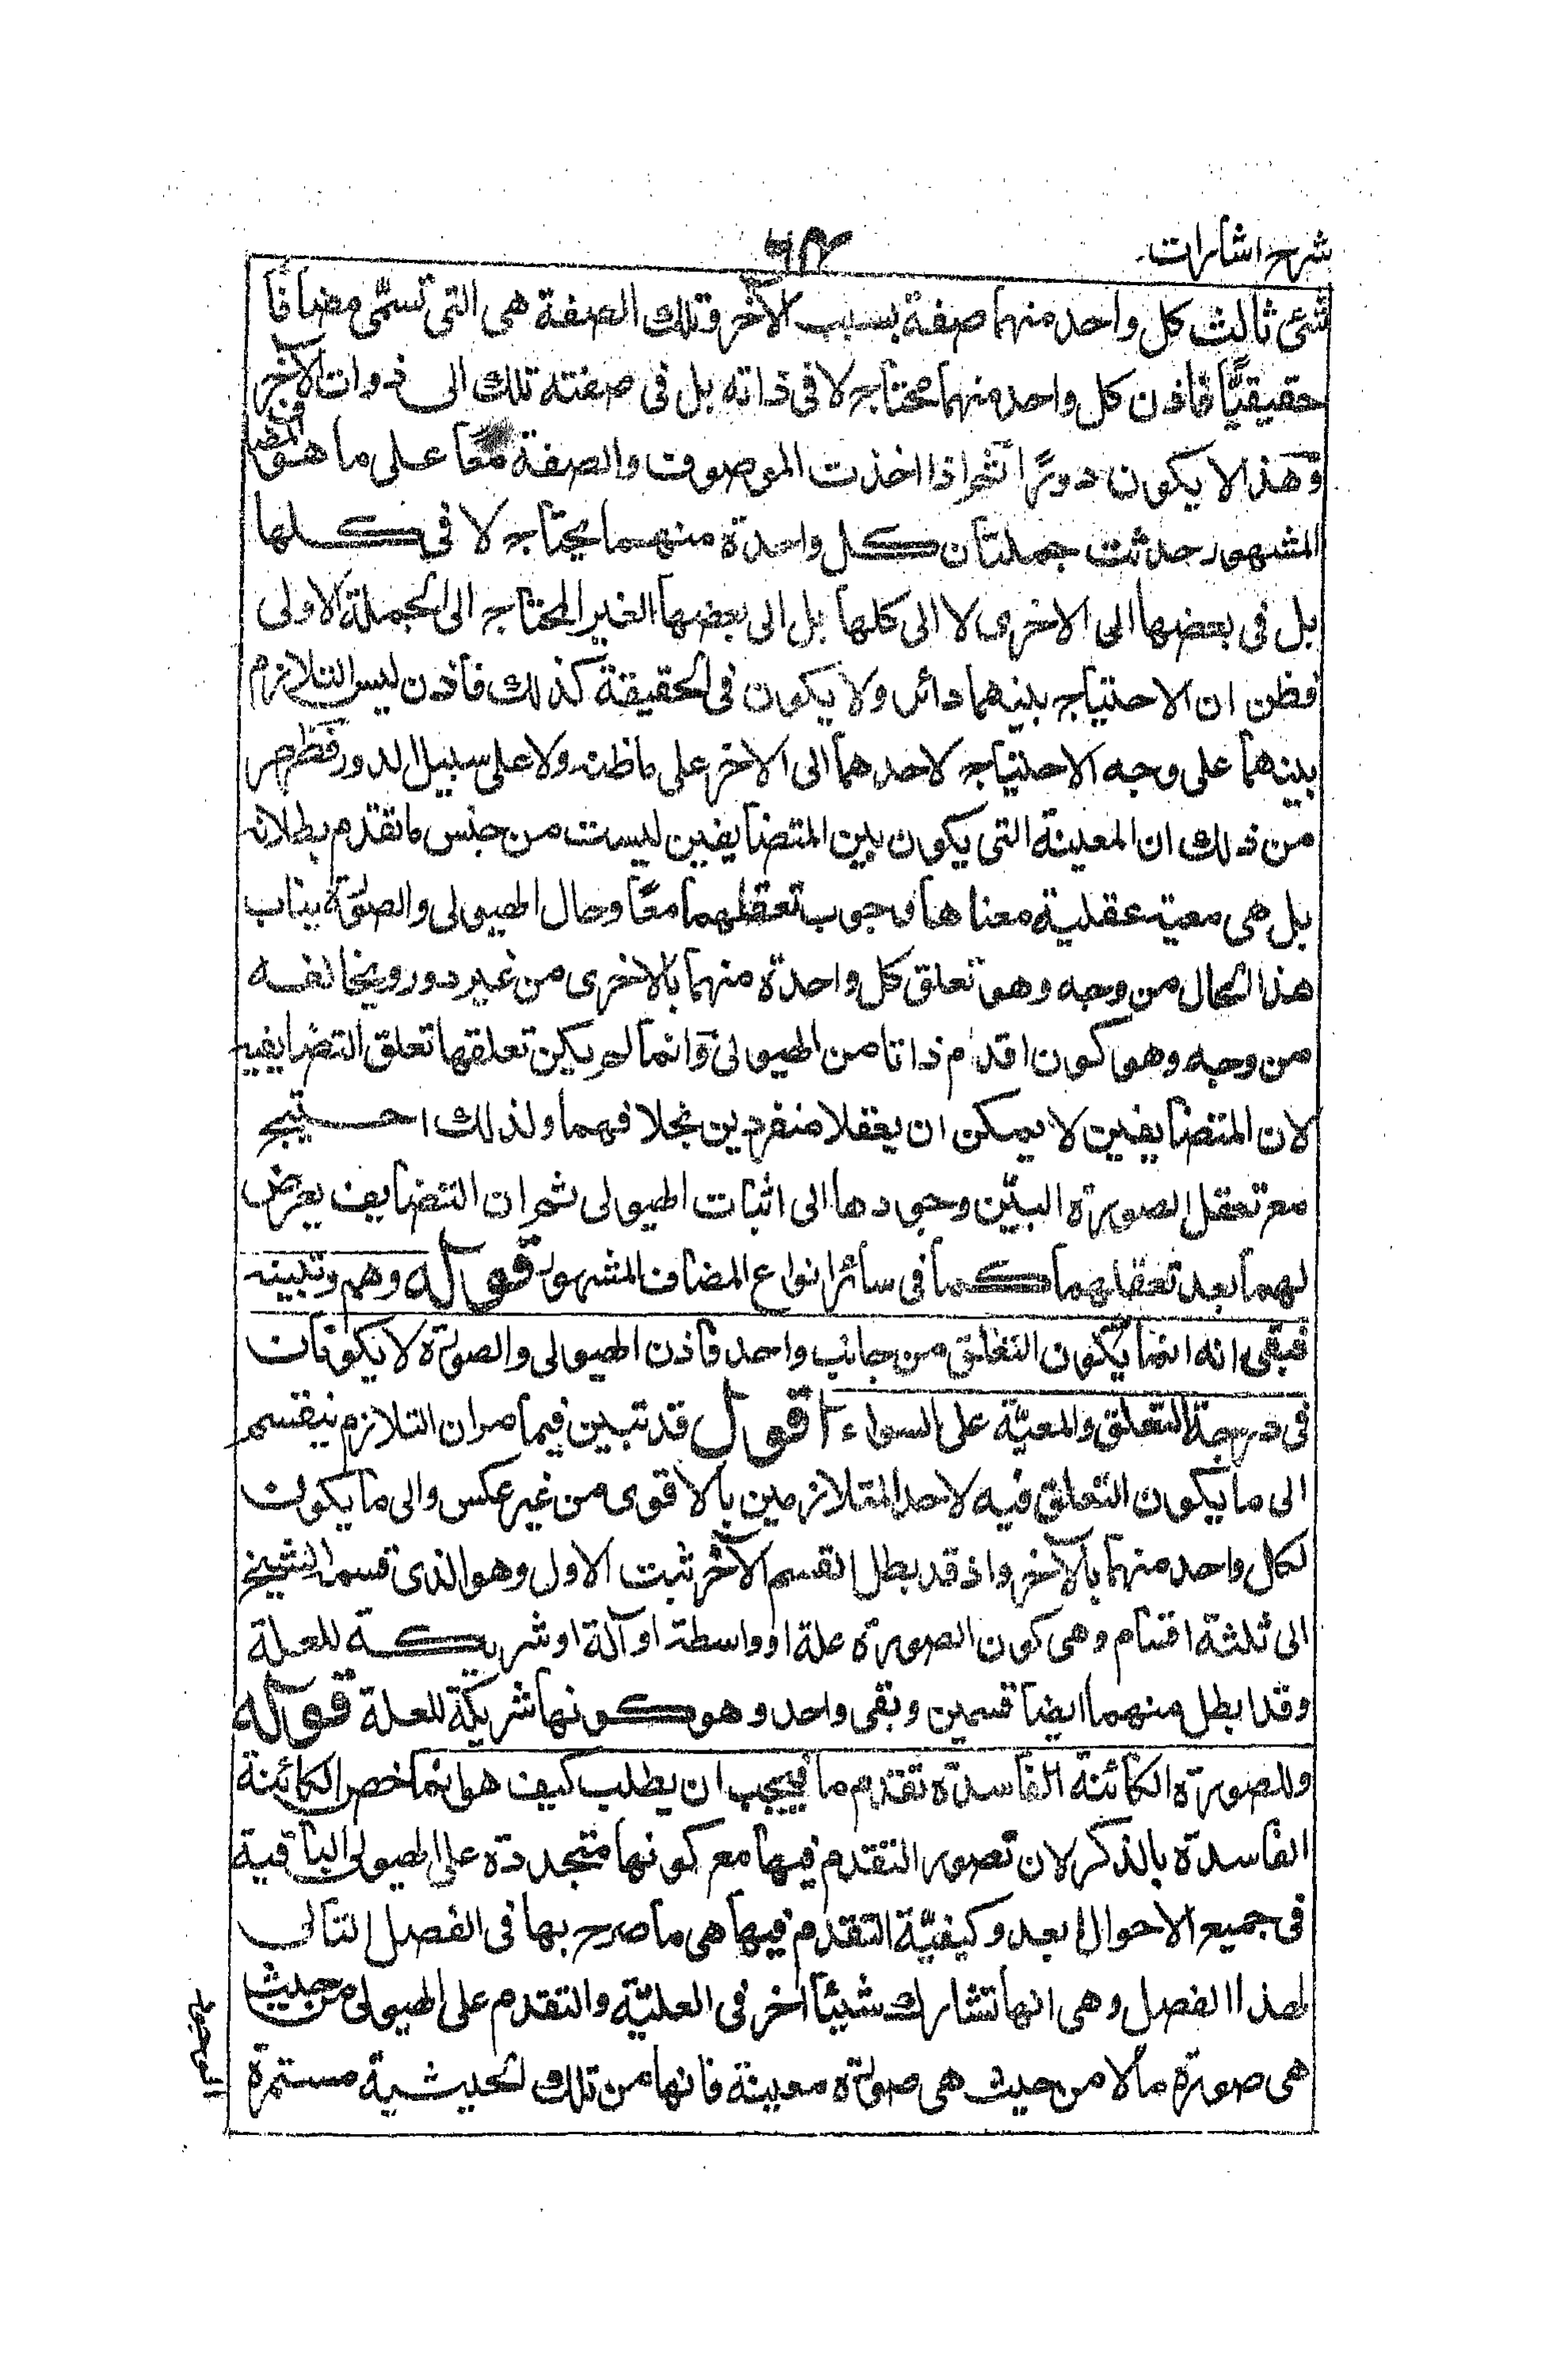 شرح اشارات
شئ ثالث كل واحد منهما صفة بسبب الآخر وتلك الصفة هى التى تسمّى مضافا
حقيقيًّا فاذن كل واحد منهما محتاج لا فى ذاته بل فى صفته تلك الى ذوات الآخر
وهذا لا يكون دورًا ثم اذا اخذت الموصوف والصفة معًا على ما هو المضاف
المشهور حدثت جملتان كل واحدة منهما يحتاج لا فى كلها
بل فى بعضها الى الاخرى لا الى كلها بل الى بعضها الغير المحتاج الى الجملة الاولى
فظن ان الاحتياج بينهما دائر ولا يكون فى الحقيقة كذلك فاذن ليس التلازم
بينهما على وجه الاحتياج لاحدهما الى الاخر على ما ظنه ولا على سبيل الدور فظهر
من ذلك ان المعينة التى يكون بين المتضايفين ليست من جنس ما تقدم بطلانه
بل هى معية عقلية معناها وجوب تعقلهما معًا وحال الهيولى والصورة يناسب
هذا الحال من وجه وهو تعلق كل واحدة منهما بالاخرى من غير دور ويخالفه
من وجه وهو كون اقدم ذاتا من الهيولى وانما لم يكن تعلقها تعلق التضايف
لان المتضايفين لا يمكن ان يعقلا منفردين بخلافهما ولذلك احتيج
مع تعقل الصورة البيّن وجودها الى اثبات الهيولى ثم ان التضايف يعرض
لهما بعد تعقلهما كما فى سائر انواع المضاف المشهور قوله وهم وتنبيه
فبقى انه انما يكون التعلق من جانب واحد فاذن الهيولى والصورة لا يكونان
فى درجة التعلق والمعيّة على السواء اقول قد تبين فيما مر ان التلازم ينقسم
الى ما يكون التعلق فيه لاحد المتلازمين بالاقوى من غير عكس والى ما يكون
لكل واحد منهما بالآخر واذ قد بطل القسم الآخر ثبت الاول وهو الذى قسمه الشيخ
الى ثلثة اقسام وهى كون الصورة علة او واسطة او آلة او شريكة للعلة
وقد ابطل منهما ايضا قسمين وبقى واحد وهو كونها شريكة للعلة قوله
وللصورة الكائنة الفاسدة تقدم ما فيجب ان يطلب كيف هو انما خص الكائنة
الفاسدة بالذكر لان تصور التقدم فيها مع كونها متجددة على الهيولى الباقية
فى جميع الاحوال ابعد وكيفيّة التقدم فيها هى ما صرح بها فى الفصل التالى
لهذا الفصل وهى انها تشارك شيئًا اخر فى العليّة والتقدم على الهيولى من حيث
هى صورة ما لا من حيث هى صورة معينة فانها من تلك الحيثية مستمرة